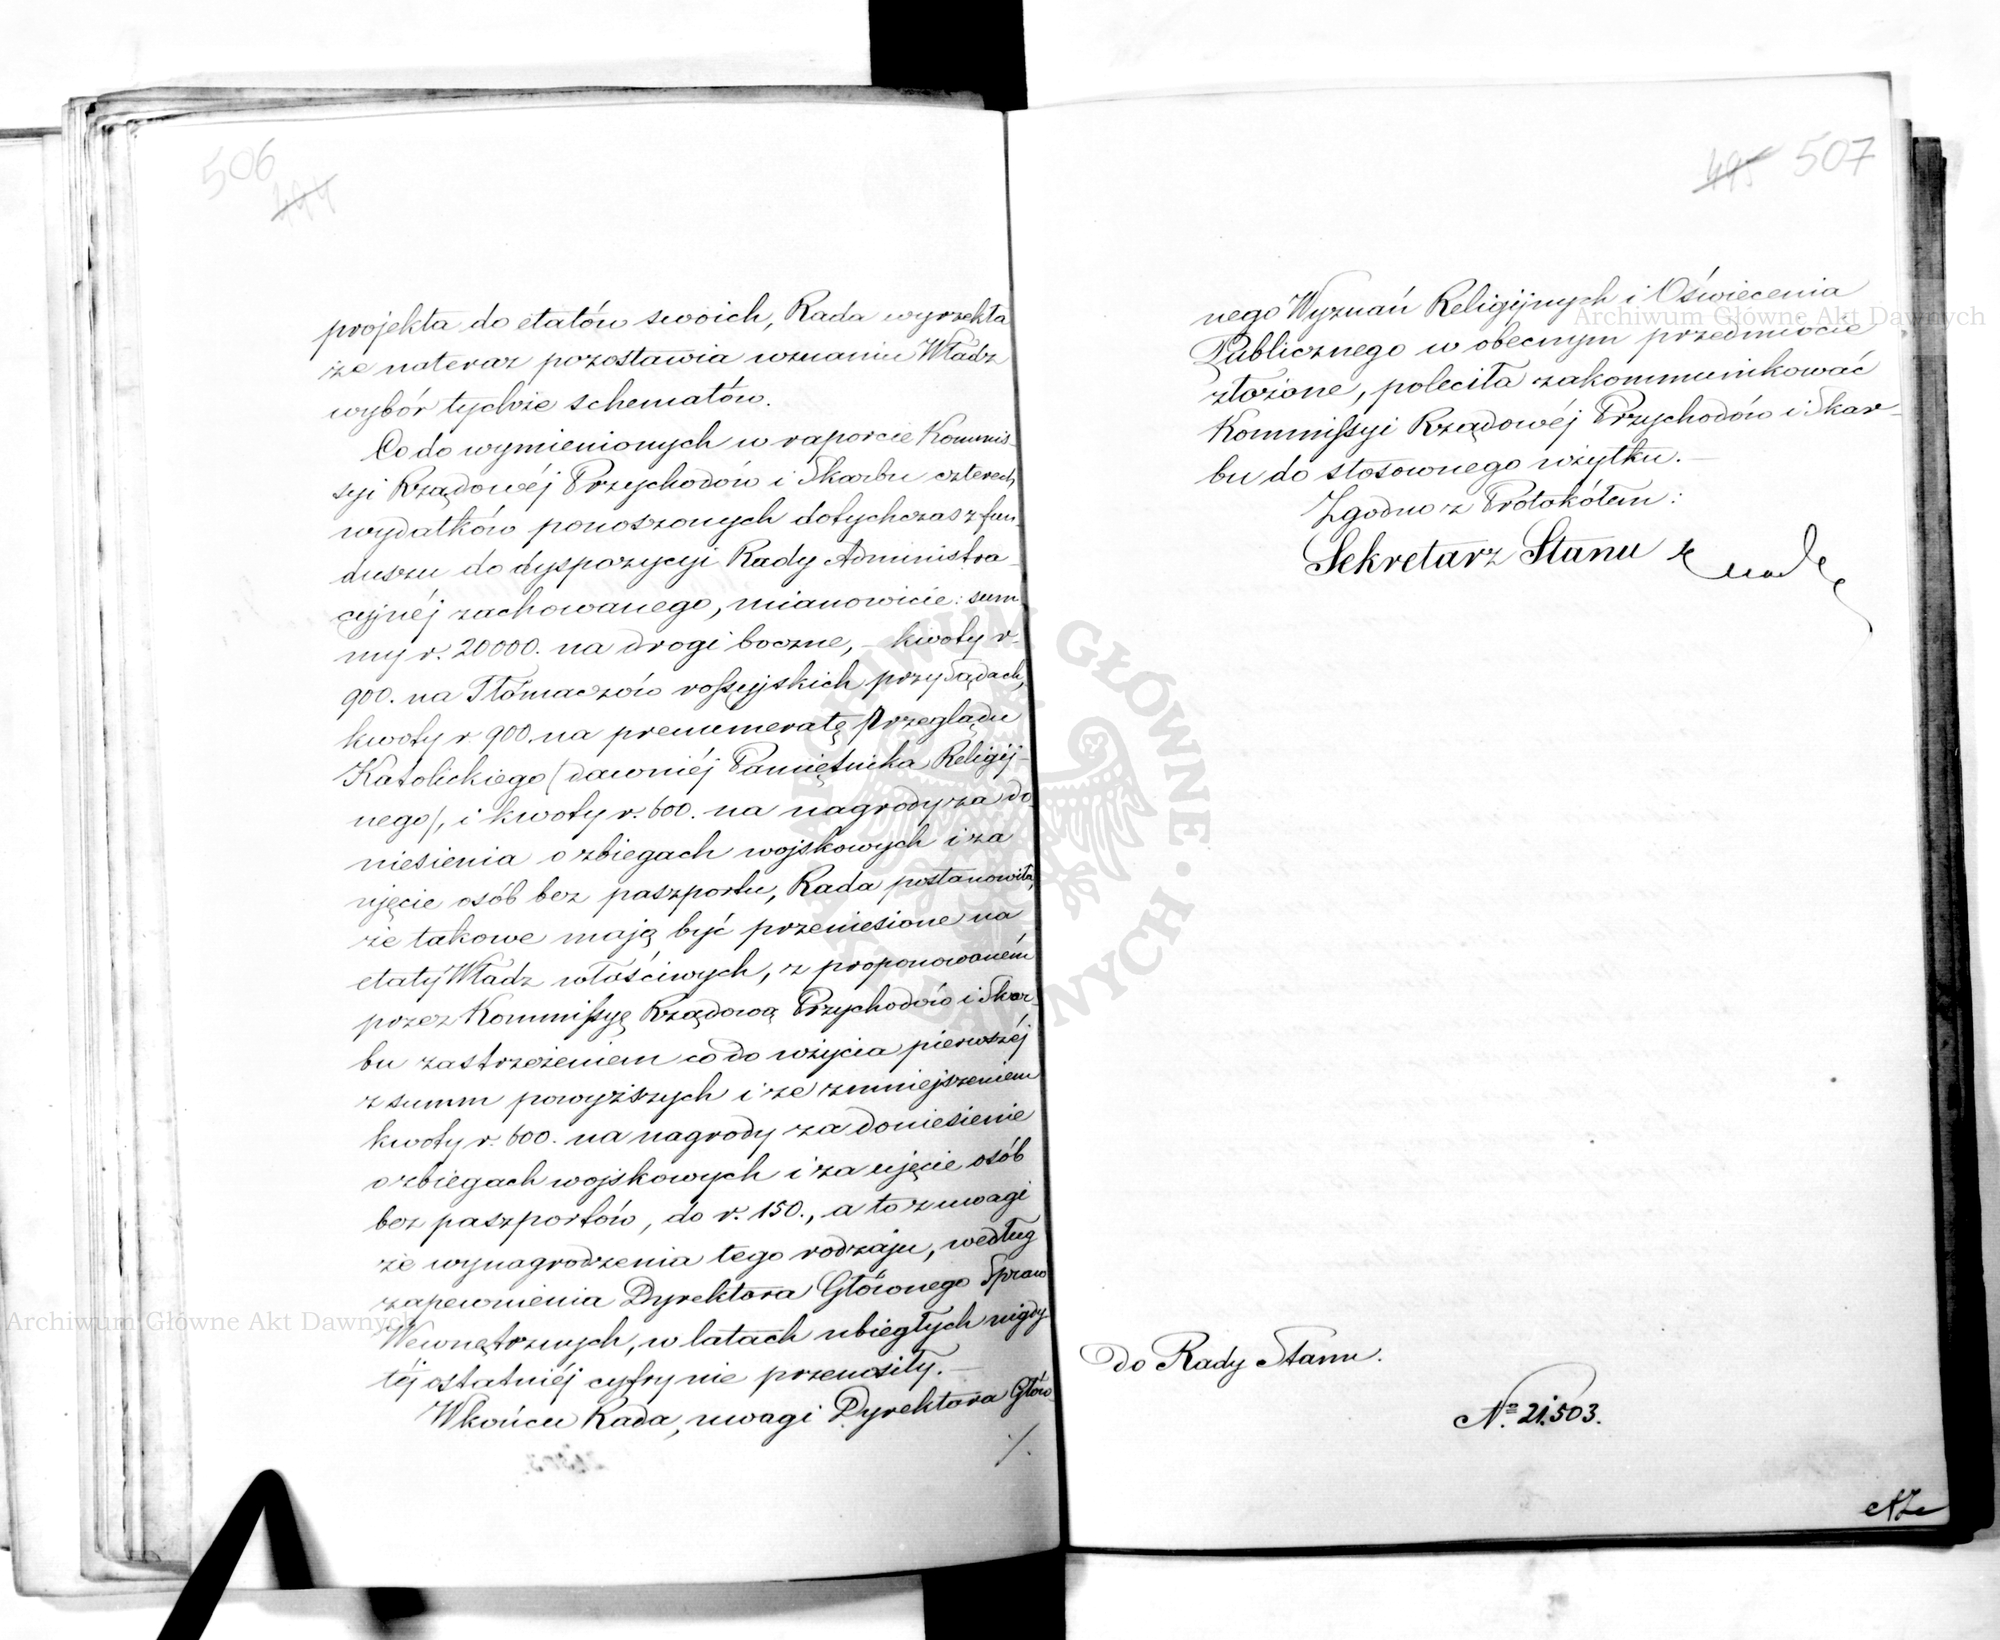 506
494
projekta do etatów swoich, Rada wyrzekła
że nateraz pozostawia uznaniu Władz
wybór tychże schematów.
Co do wymienionych w raporcie Kommis-
syi Rządowéj Przychodów i Skarbu czterech
wydatków ponoszonych dotychczas z fun-
duszu do dyspozycyi Rady Administra-
cyjnéj zachowanego, mianowicie: sum-
my r. 20000. na drogi boczne, – kwoty r.
900. na Tłómaczów rossyjskich przy Sądach,
kwoty r. 900. na prenumeratę Przeglądu
Katolickiego (dawniéj Pamiętnika Religij-
nego), i kwoty r. 600. na nagrody za do-
niesienia o zbiegach wojskowych i za
ujęcie osób bez paszportu, Rada postanowiła,
że takowe mają być przeniesione na
etaty Władz właściwych, z proponowaném
przez Kommissyę Rządową Przychodów i Skar-
bu zastrzeżeniem co do użycia pierwszéj
z summ powyższych i ze zmniejszeniem
kwoty r. 600. na nagrody za doniesienie
o zbiegach wojskowych i za ujęcie osób
bez paszportów, do r. 150., a to z uwagi
że wynagrodzenia tego rodzaju, według
zapewnienia Dyrektora Głównego Spraw
Wewnętrznych, w latach ubiegłych nigdy
téj ostatniéj cyfry nie przenosiły. –
Wkońcu Rada, uwagi Dyrektora Głów-
./.
495 507
nego Wyznań Religijnych i Oświecenia
Publicznego w obecnym przedmiocie
złożone, poleciła zakommunikować
Kommissyi Rządowéj Przychodów i Skar-
bu do stosownego użytku. –
Zgodno z Protokółem:
Sekretarz Stanu
do Rady Stanu.
No. 21.503.
Archiwum Główne Akt Dawnych
Archiwum Główne Akt Dawnych
ARCHIWUM GŁÓWNE AKT DAWNYCH